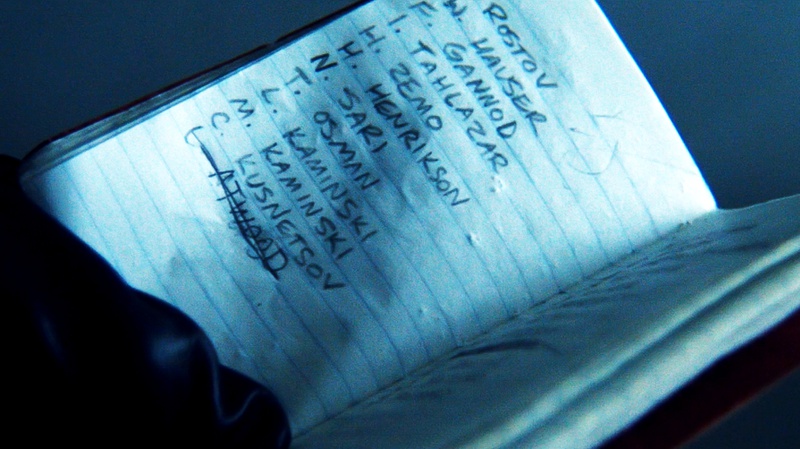 ROSTOV
W. HAUSER
F. GANNOD
I. TAHLAZAR
H. ZEMO
H. HENRIKSON
N. SARI
T. OSMAN
L. KAMINSKI
M. KAMINSKI
C. KUSNETSOV
ATWOOD